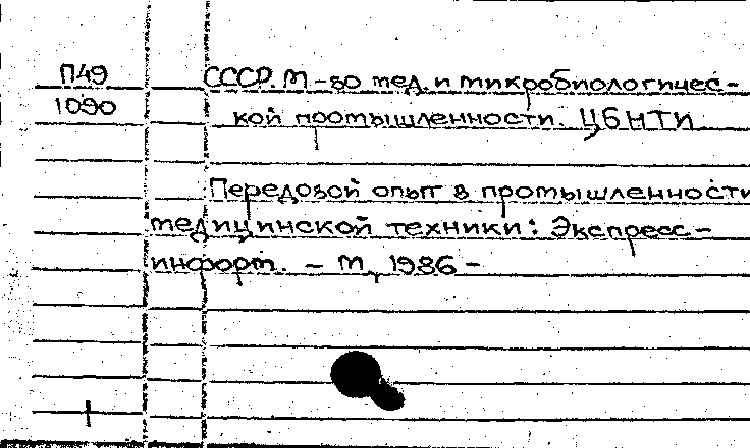 П49
1090
СССР. М-во мед. и микробиологичес-
кой промышленности. ЦБНТИ
Передовой опыт в промышленности
медицинской техники: Экспресс-
информ. - М, 1986 -